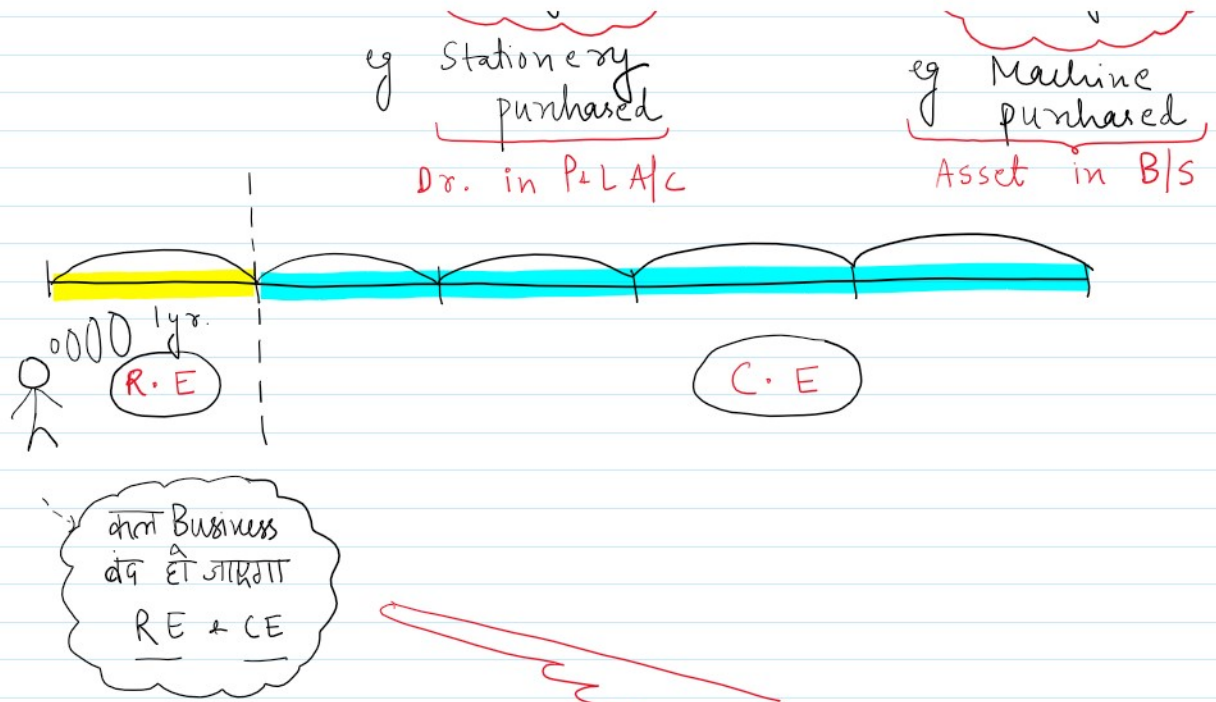 eg Stationery
purchased
Dr. in P&L A/c
eg Machine
purchased
Asset in B/S
1yr.
R.E
C.E
कल Business
बंद हो जाएगा
RE & CE